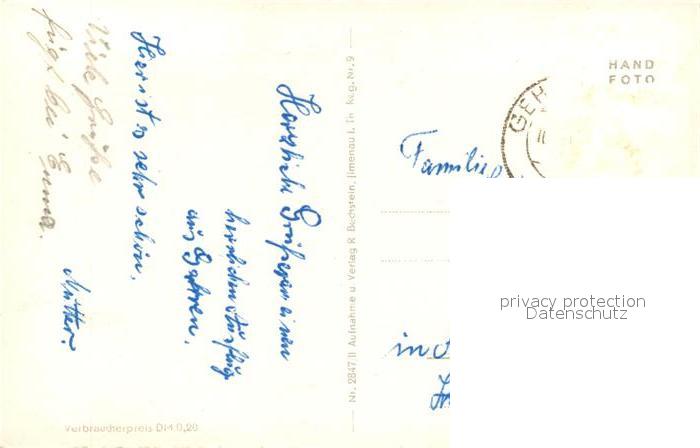 Herzliche Grüße von einem
herrlichen Ausflug
aus Gehren.
Hier ist es sehr schön.
Mutter.
Viele Grüße
fügt bei Erna.
Nr. 2847 II Aufnahme u. Verlag R. Bechstein, Ilmenau i. Th. Reg. Nr. 9
Verbraucherpreis DM 0,20
HAND
FOTO
GEH
Familie
in
privacy protection
Datenschutz